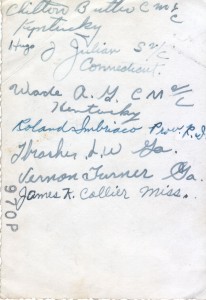 Clifton Butler C M 2/C
Kentucky
Hugo J Julian S 1/C
Connecticut
Wade A. G. C M 2/C
Kentucky
Roland Imbriaco Pvt R.I.
Thrasher L.W Ga.
Vernon Turner Ga.
James K. Collier Miss.
970P